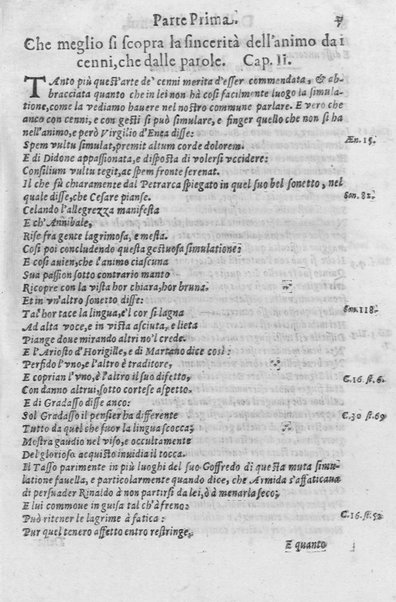 Parte Prima. 7
Che meglio si scopra la sincerità dell'animo da i
cenni, che dalle parole. Cap. II.
TAnto più quest'arte de' cenni merita d'esser commendata, & ab-
bracciata quanto che in lei non hà così facilmente luogo la simula-
tione, come la vediamo hauere nel nostro commune parlare. E vero che
anco con cenni, e con gesti si può simulare, e finger quello che non si ha
nell'animo, e però Virgilio d'Enea disse: Æn. 15.
Spem vultu simulat, premit altum corde dolorem.
E di Didone appassionata, e disposta di volersi vccidere:
Consilium vultu tegit, ac spem fronte serenat.
Il che sù chiaramente dal Petrarca spiegato in quel suo bel sonetto, nel
quale disse, che Cesare pianse. son. 82.
Celando l'allegrezza manifesta
E ch'Annibale,
Rise fra gente lagrimosa, e mesta.
Così poi concludendo questa gestuosa simulatione?
E così auien, che l'animo ciascuna
Sua passion sotto contrario manto
Ricopre con la vista hor chiara, hor bruna.
Et in vn'altro sonetto disse:
Tal'hor tace la lingua, e'l cor si lagna son. 118.
Ad alta voce, e in vista asciuta, e lieta
Piange doue mirando altri no'l crede.
E l'Ariosto d'Horigille, e di Martano dice così:
Perfido l'vno, e l'altro è traditore,
E coprian l'vno, e l'altro il suo difetto, C. 16. st. 6.
Con danno altrui, sotto cortese aspetto.
E di Gradasso disse anco:
Sol Gradasso il pensier ha differente C. 30 st. 69.
Tutto da quel che fuor la lingua scocca;
Mostra gaudio nel viso, e occultamente
Del glorioso acquisto inuidia il tocca.
Il Tasso parimente in più luoghi del suo Goffredo di questa muta simu-
latione fauella, e particolarmente quando dice, che Armida s'affaticaua
di persuader Rinaldo à non partirsi da lei, ò à menarla seco;
E lui commoue in guisa tal ch'à freno:
Può ritener le lagrime à fatica: C. 16. st. 52.
Pur quel tenero affetto entro restringe,
E quanto